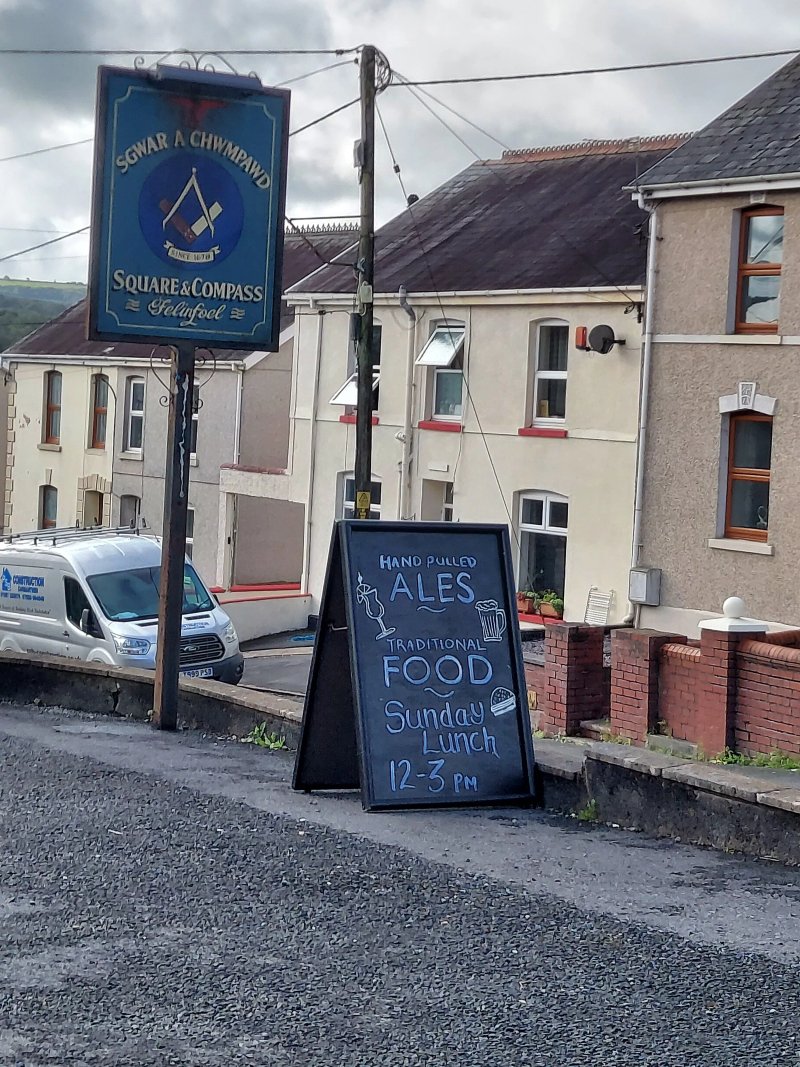 SGWAR A CHWMPAWD
SINCE 1670
SQUARE & COMPASS
Felinfoel
CONSTRUCTION
HAND PULLED
ALES
TRADITIONAL
FOOD
Sunday
Lunch
12-3 PM